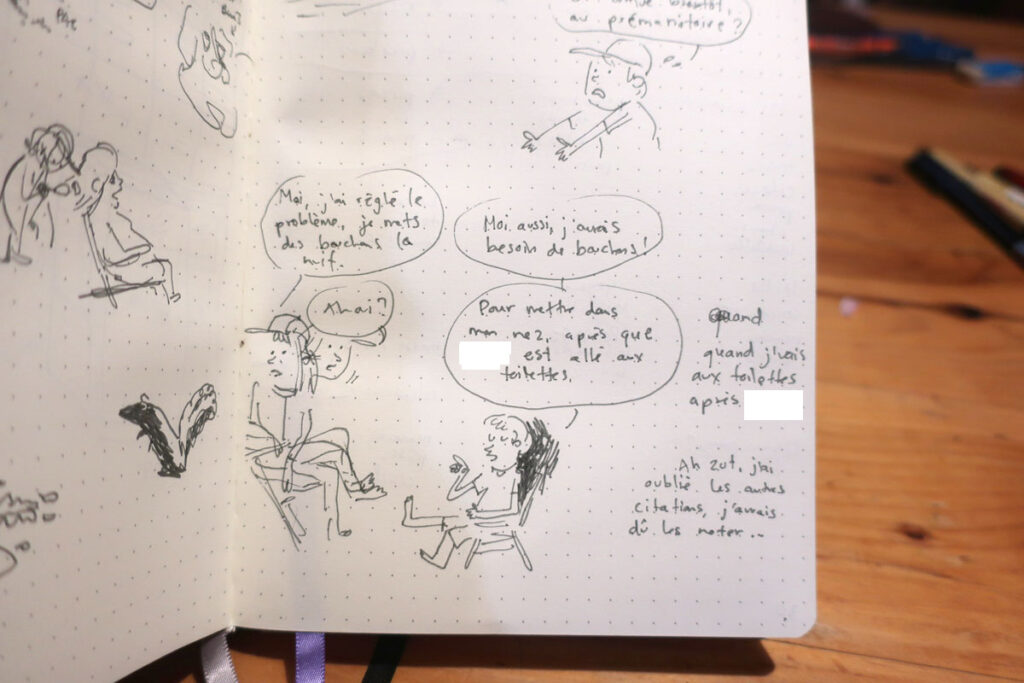 Père
bientôt,
au prémaristoire?
Moi, j'ai réglé le
problème, je mets
des bouchons la
nuit.
Moi aussi, j'aurais
besoin de bouchons!
Ah oui?
Pour mettre dans
mon nez, après que
est allé aux
toilettes.
quand
quand j'vais
aux toilettes
après
Ah zut, j'ai
oublié les autres
citations, j'aurais
dû les noter...